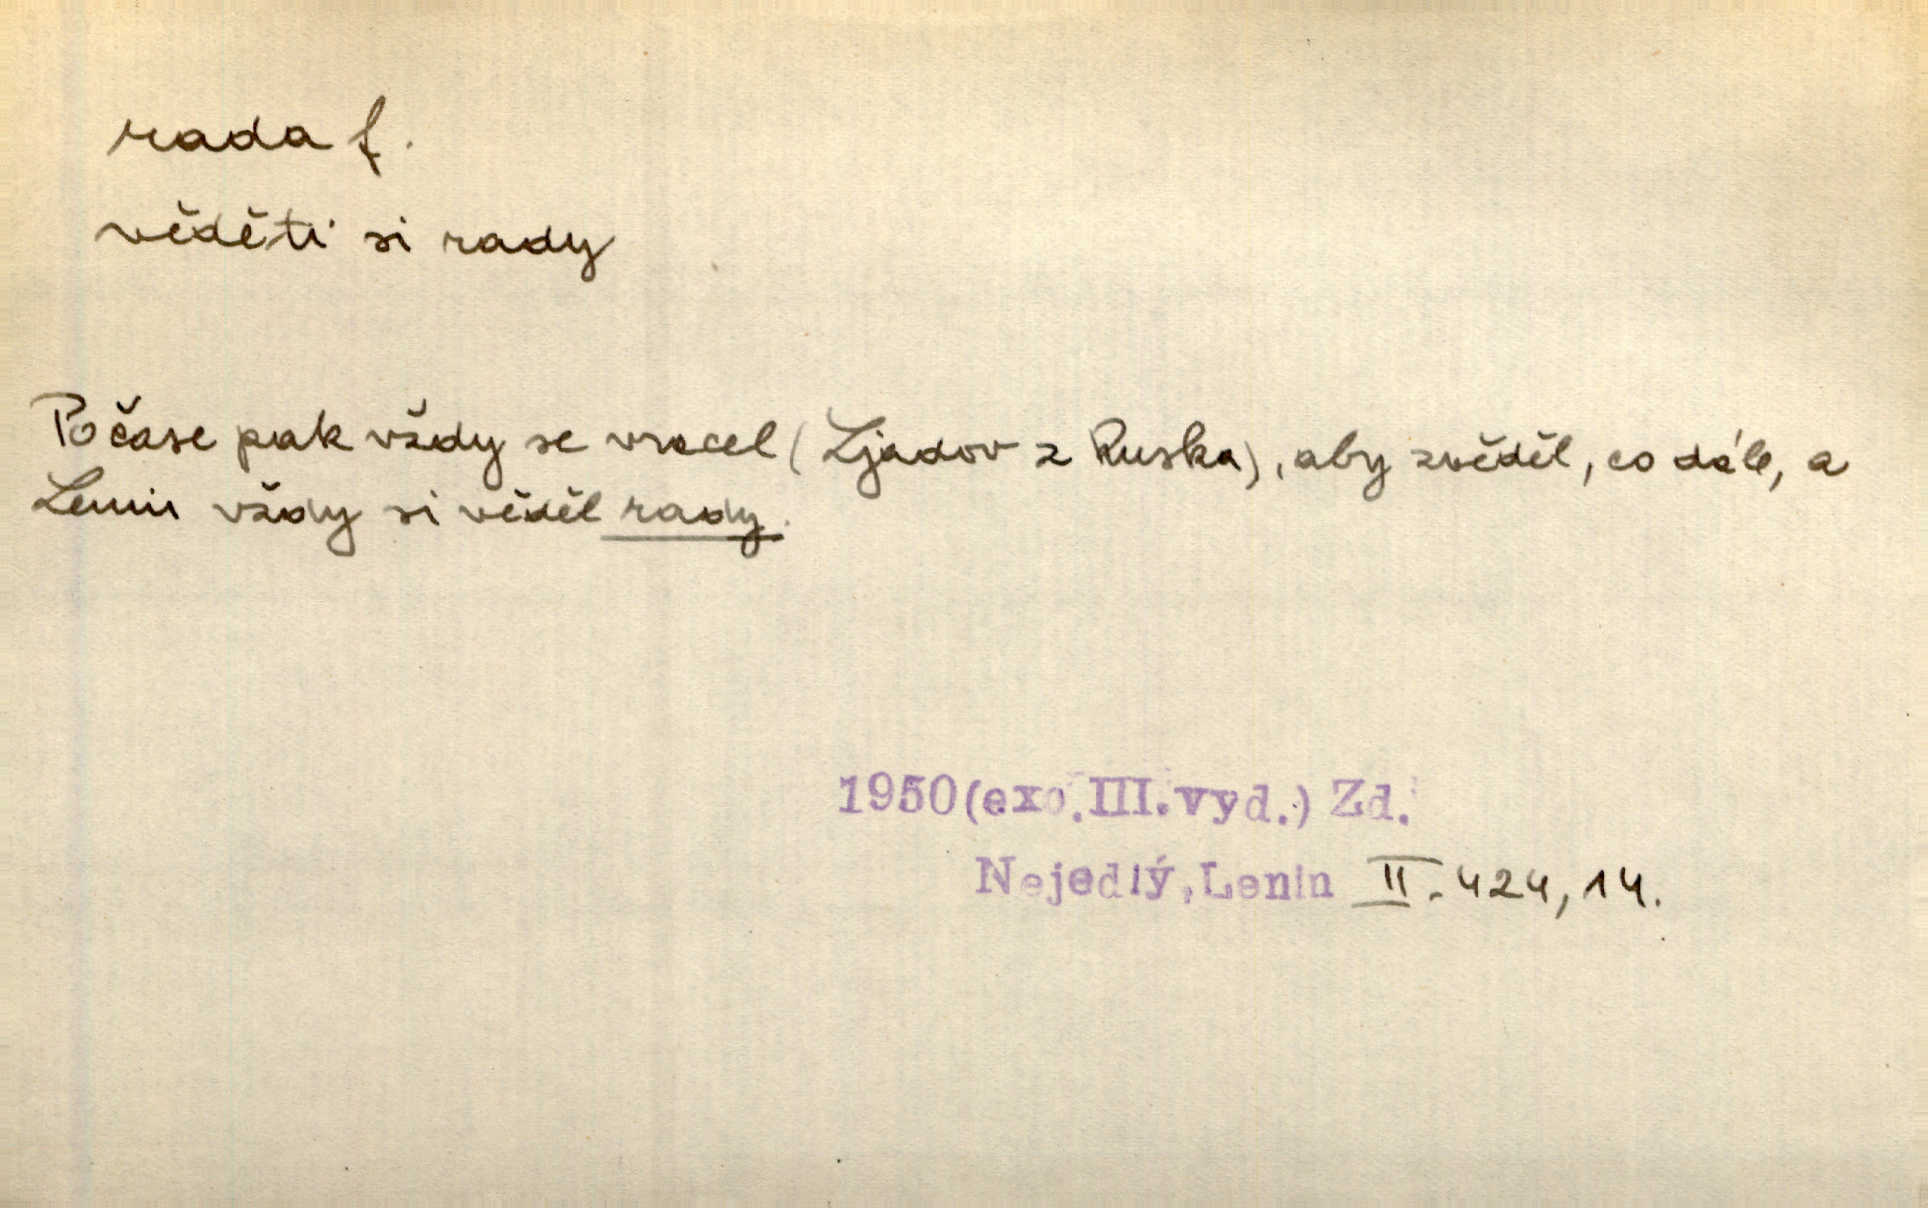 rada f.
věděti si rady
Počase pak vždy se vracel (Ljadov z Ruska), aby zvěděl, co dále, a
Lenin vždy si věděl rady.
1950(exc.III.vyd.) Zd.
Nejedlý, Lenin II. 424, 14.